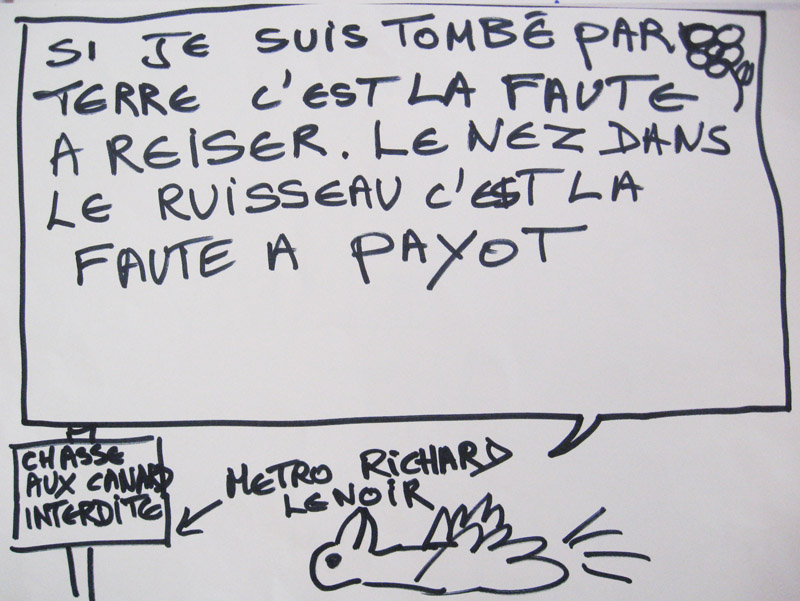 SI JE SUIS TOMBÉ PAR
TERRE C'EST LA FAUTE
A REISER. LE NEZ DANS
LE RUISSEAU C'EST LA
FAUTE A PAYOT
CHASSE
AUX CANARD
INTERDITE
METRO RICHARD
LENOIR